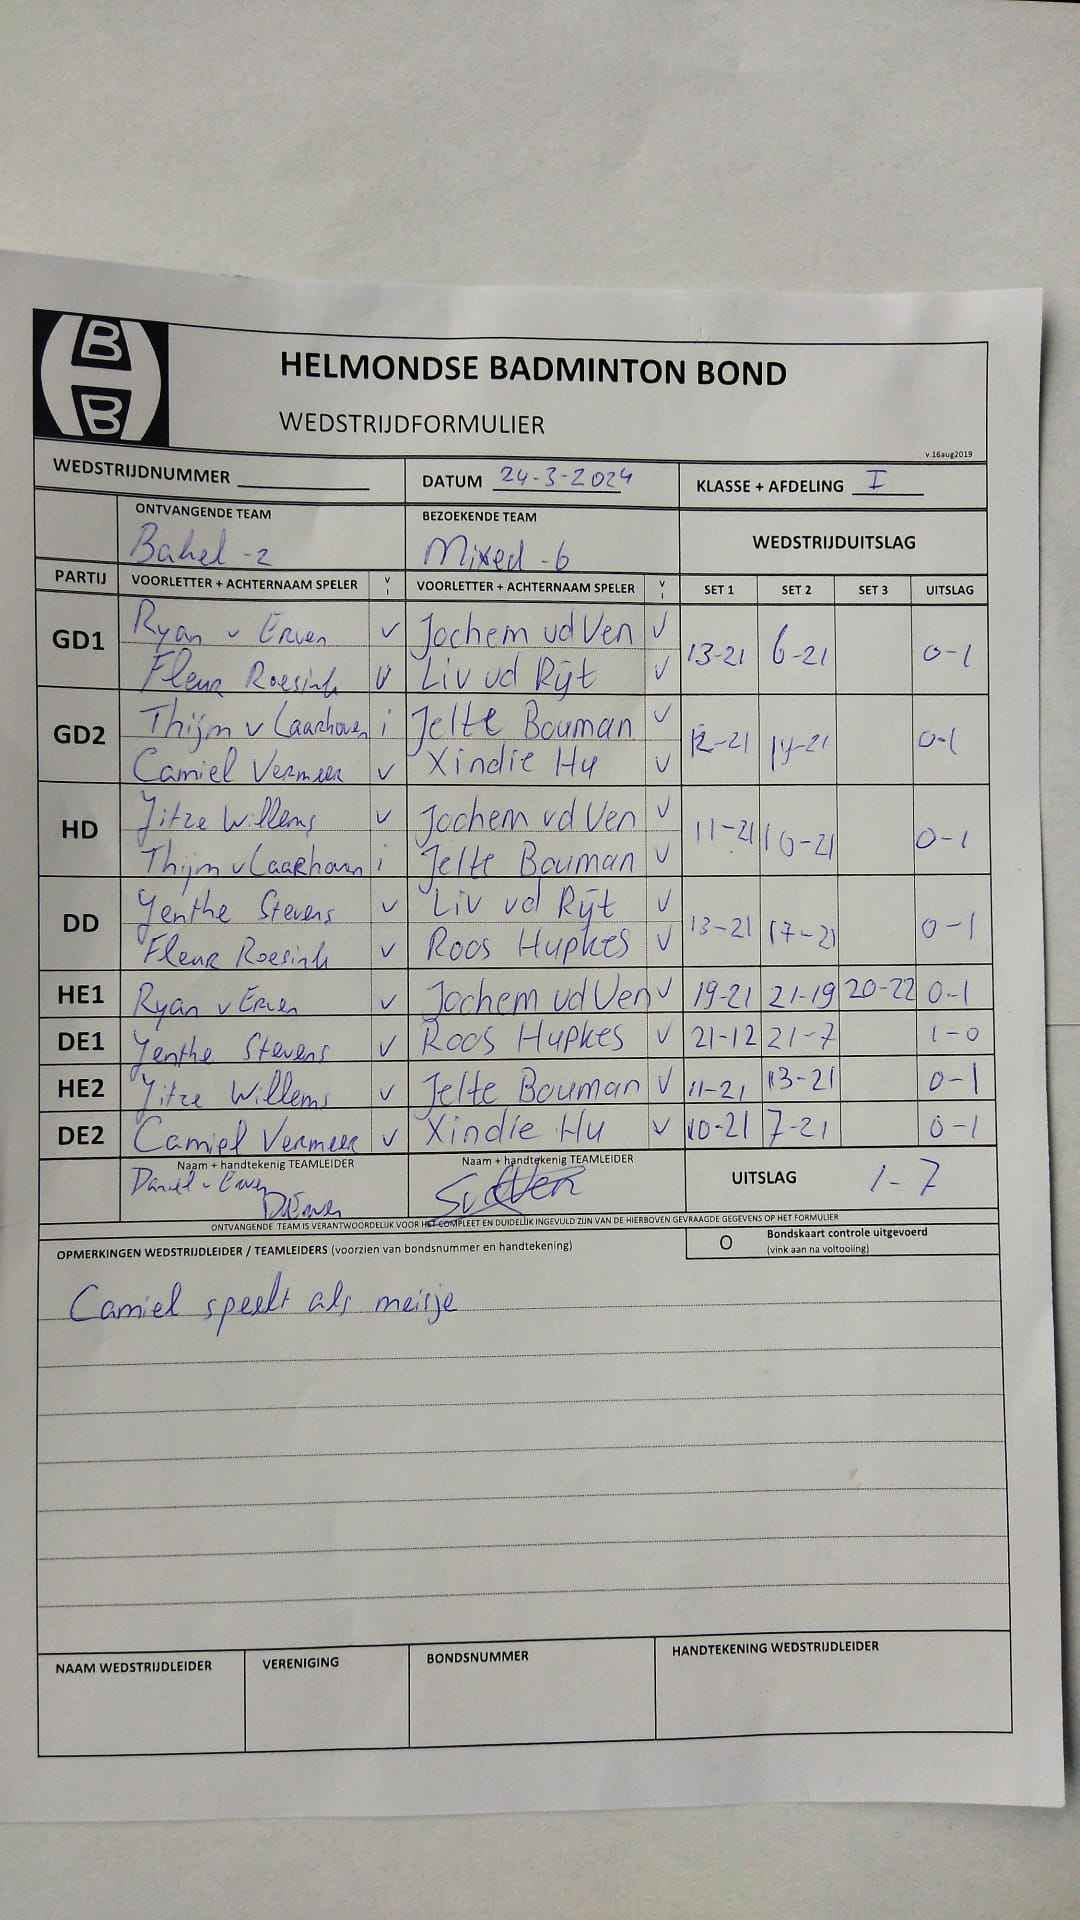 B
B
HELMONDSE BADMINTON BOND
WEDSTRIJDFORMULIER
v.16aug2019
WEDSTRIJDNUMMER DATUM 24-3-2024 KLASSE + AFDELING I
ONTVANGENDE TEAM BEZOEKENDE TEAM WEDSTRIJDUITSLAG
Bakel -2 Mixed -6
PARTIJ VOORLETTER + ACHTERNAAM SPELER v/i VOORLETTER + ACHTERNAAM SPELER v/i SET 1 SET 2 SET 3 UITSLAG
GD1 Ryan v Erven v Jochem vd Ven v 13-21 6-21 0-1
Fleur Roesink v Liv vd Rijt v
GD2 Thijm v Laarhoven i Jelte Bouman v 12-21 14-21 0-1
Camiel Vermeer v Xindie Hu v
HD Jitze Willems v Jochem vd Ven v 11-21 10-21 0-1
Thijm v Laarhoven i Jelte Bouman v
DD Yenthe Stevens v Liv vd Rijt v 13-21 17-21 0-1
Fleur Roesink v Roos Hupkes v
HE1 Ryan v Erven v Jochem vd Ven v 19-21 21-19 20-22 0-1
DE1 Yenthe Stevens v Roos Hupkes v 21-12 21-7 1-0
HE2 Jitze Willems v Jelte Bouman v 11-21 13-21 0-1
DE2 Camiel Vermeer v Xindie Hu v 10-21 7-21 0-1
Naam + handtekenig TEAMLEIDER Naam + handtekenig TEAMLEIDER UITSLAG 1-7
ONTVANGENDE TEAM IS VERANTWOORDELIJK VOOR HET COMPLEET EN DUIDELIJK INGEVULD ZIJN VAN DE HIERBOVEN GEVRAAGDE GEGEVENS OP HET FORMULIER
OPMERKINGEN WEDSTRIJDLEIDER / TEAMLEIDERS (voorzien van bondsnummer en handtekening) O Bondskaart controle uitgevoerd
(vink aan na voltooiing)
Camiel speelt als meisje
NAAM WEDSTRIJDLEIDER VERENIGING BONDSNUMMER HANDTEKENING WEDSTRIJDLEIDER